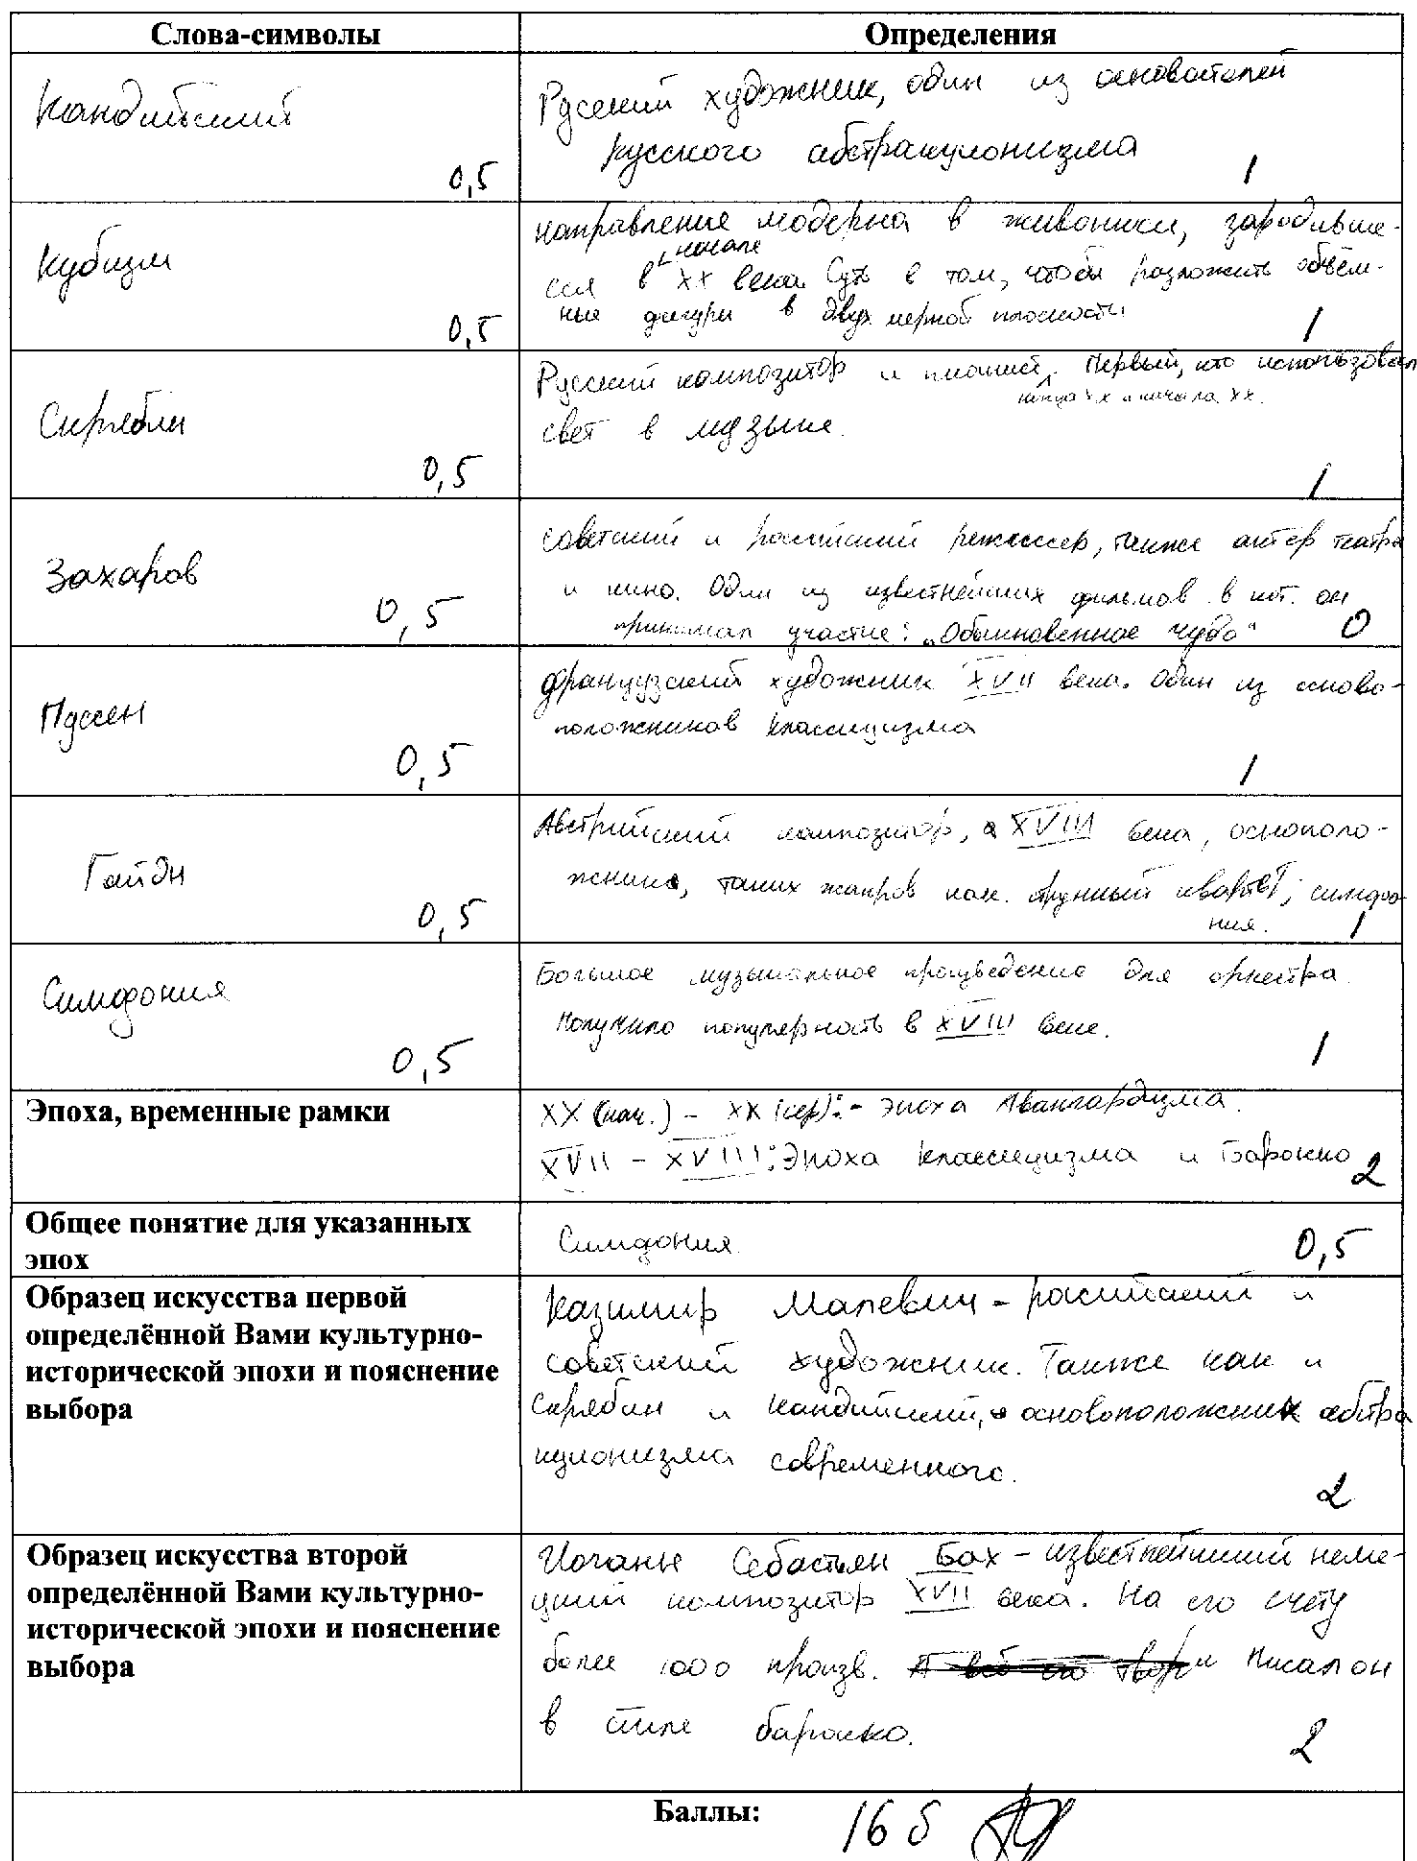 Слова-символы
Определения
Кандинский
0,5
Русский художник, один из основателей
русского абстракционизма
1
Кубизм
0,5
направление модерна в живописи, зародивше-
начале
еся в XX века. Суть в том, чтобы разложить объём-
ные фигуры в двух мерной плоскости
1
Скрябин
0,5
Русский композитор и пианист. Первый, кто использовал
конца и начала XX.
свет в музыке.
1
Захаров
0,5
советский и российский режиссер, также актер театра
и кино. Один из известнейших фильмов в кот. он
принимал участие: „Обыкновенное чудо“
0
Пуссен
0,5
французский художник XVII века. Один из осново-
положников классицизма
1
Гайдн
0,5
Австрийский композитор, XVIII века, осноположника,
жника, таких жанров как. струнный квартет, симфо-
ния.
1
Симфония
0,5
Большое музыкальное произведение для оркестра.
Получило популярность в XVIII веке.
1
Эпоха, временные рамки
XX (нач.) – XX (сер): - эпоха Авангардизма.
XVII – XVIII: Эпоха классицизма и Барокко
2
Общее понятие для указанных
эпох
Симфония.
0,5
Образец искусства первой
определённой Вами культурно-
исторической эпохи и пояснение
выбора
Казимир Малевич - российский и
советский художник. Также как и
Скрябин и Кандинский, основоположник абстра
кционизма современного.
2
Образец искусства второй
определённой Вами культурно-
исторической эпохи и пояснение
выбора
Иоганн Себастьян Бах - известнейший неме-
цкий композитор XVII века. На его счету
более 1000 произв. Писал он
в стиле барокко.
2
Баллы:
16 б